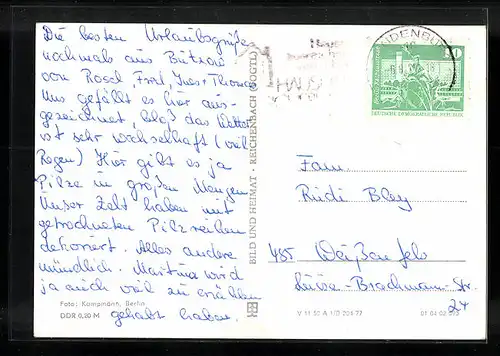 Die besten Urlaubsgrüße
nochmals aus Bützow
von Rosel, Fred, Yves + Thomas
Uns gefällt es hier aus-
gezeichnet, bloß das Wetter
ist sehr wechselhaft (viel
Regen) Hier gibt es ja
Pilze in großen Mengen
Unser Zelt haben mit
getrockneten Pilzreihen
dekoriert. Alles andere
mündlich. Martina wird
ja auch viel zu erzählen
gehabt haben.
Foto: Kampmann, Berlin
DDR 0,20 M
BILD UND HEIMAT · REICHENBACH (VOGTL)
10
DEUTSCHE DEMOKRATISCHE REPUBLIK
Fam.
Rudi Bley
485 Weißenfels
Luise-Brachmann-Str.
24
V 11 50 A 1/D 206 77
01 04 02 073